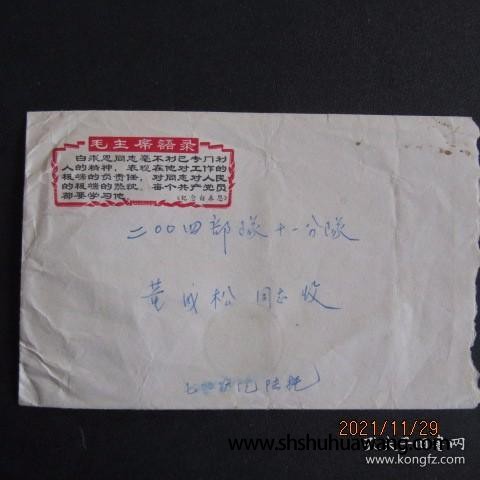 毛主席語录
白求恩同志毫不利己专门利
人的精神，表现在他对工作的
极端的负责任，对同志对人民
的极端的热忱。每个共产党员
都要学习他。
《纪念白求恩》
二〇〇四部隊十一分隊
董成松 同志收
2021/11/29
www.shshuhuawang.com
孔夫子旧书网
www.kongfz.com